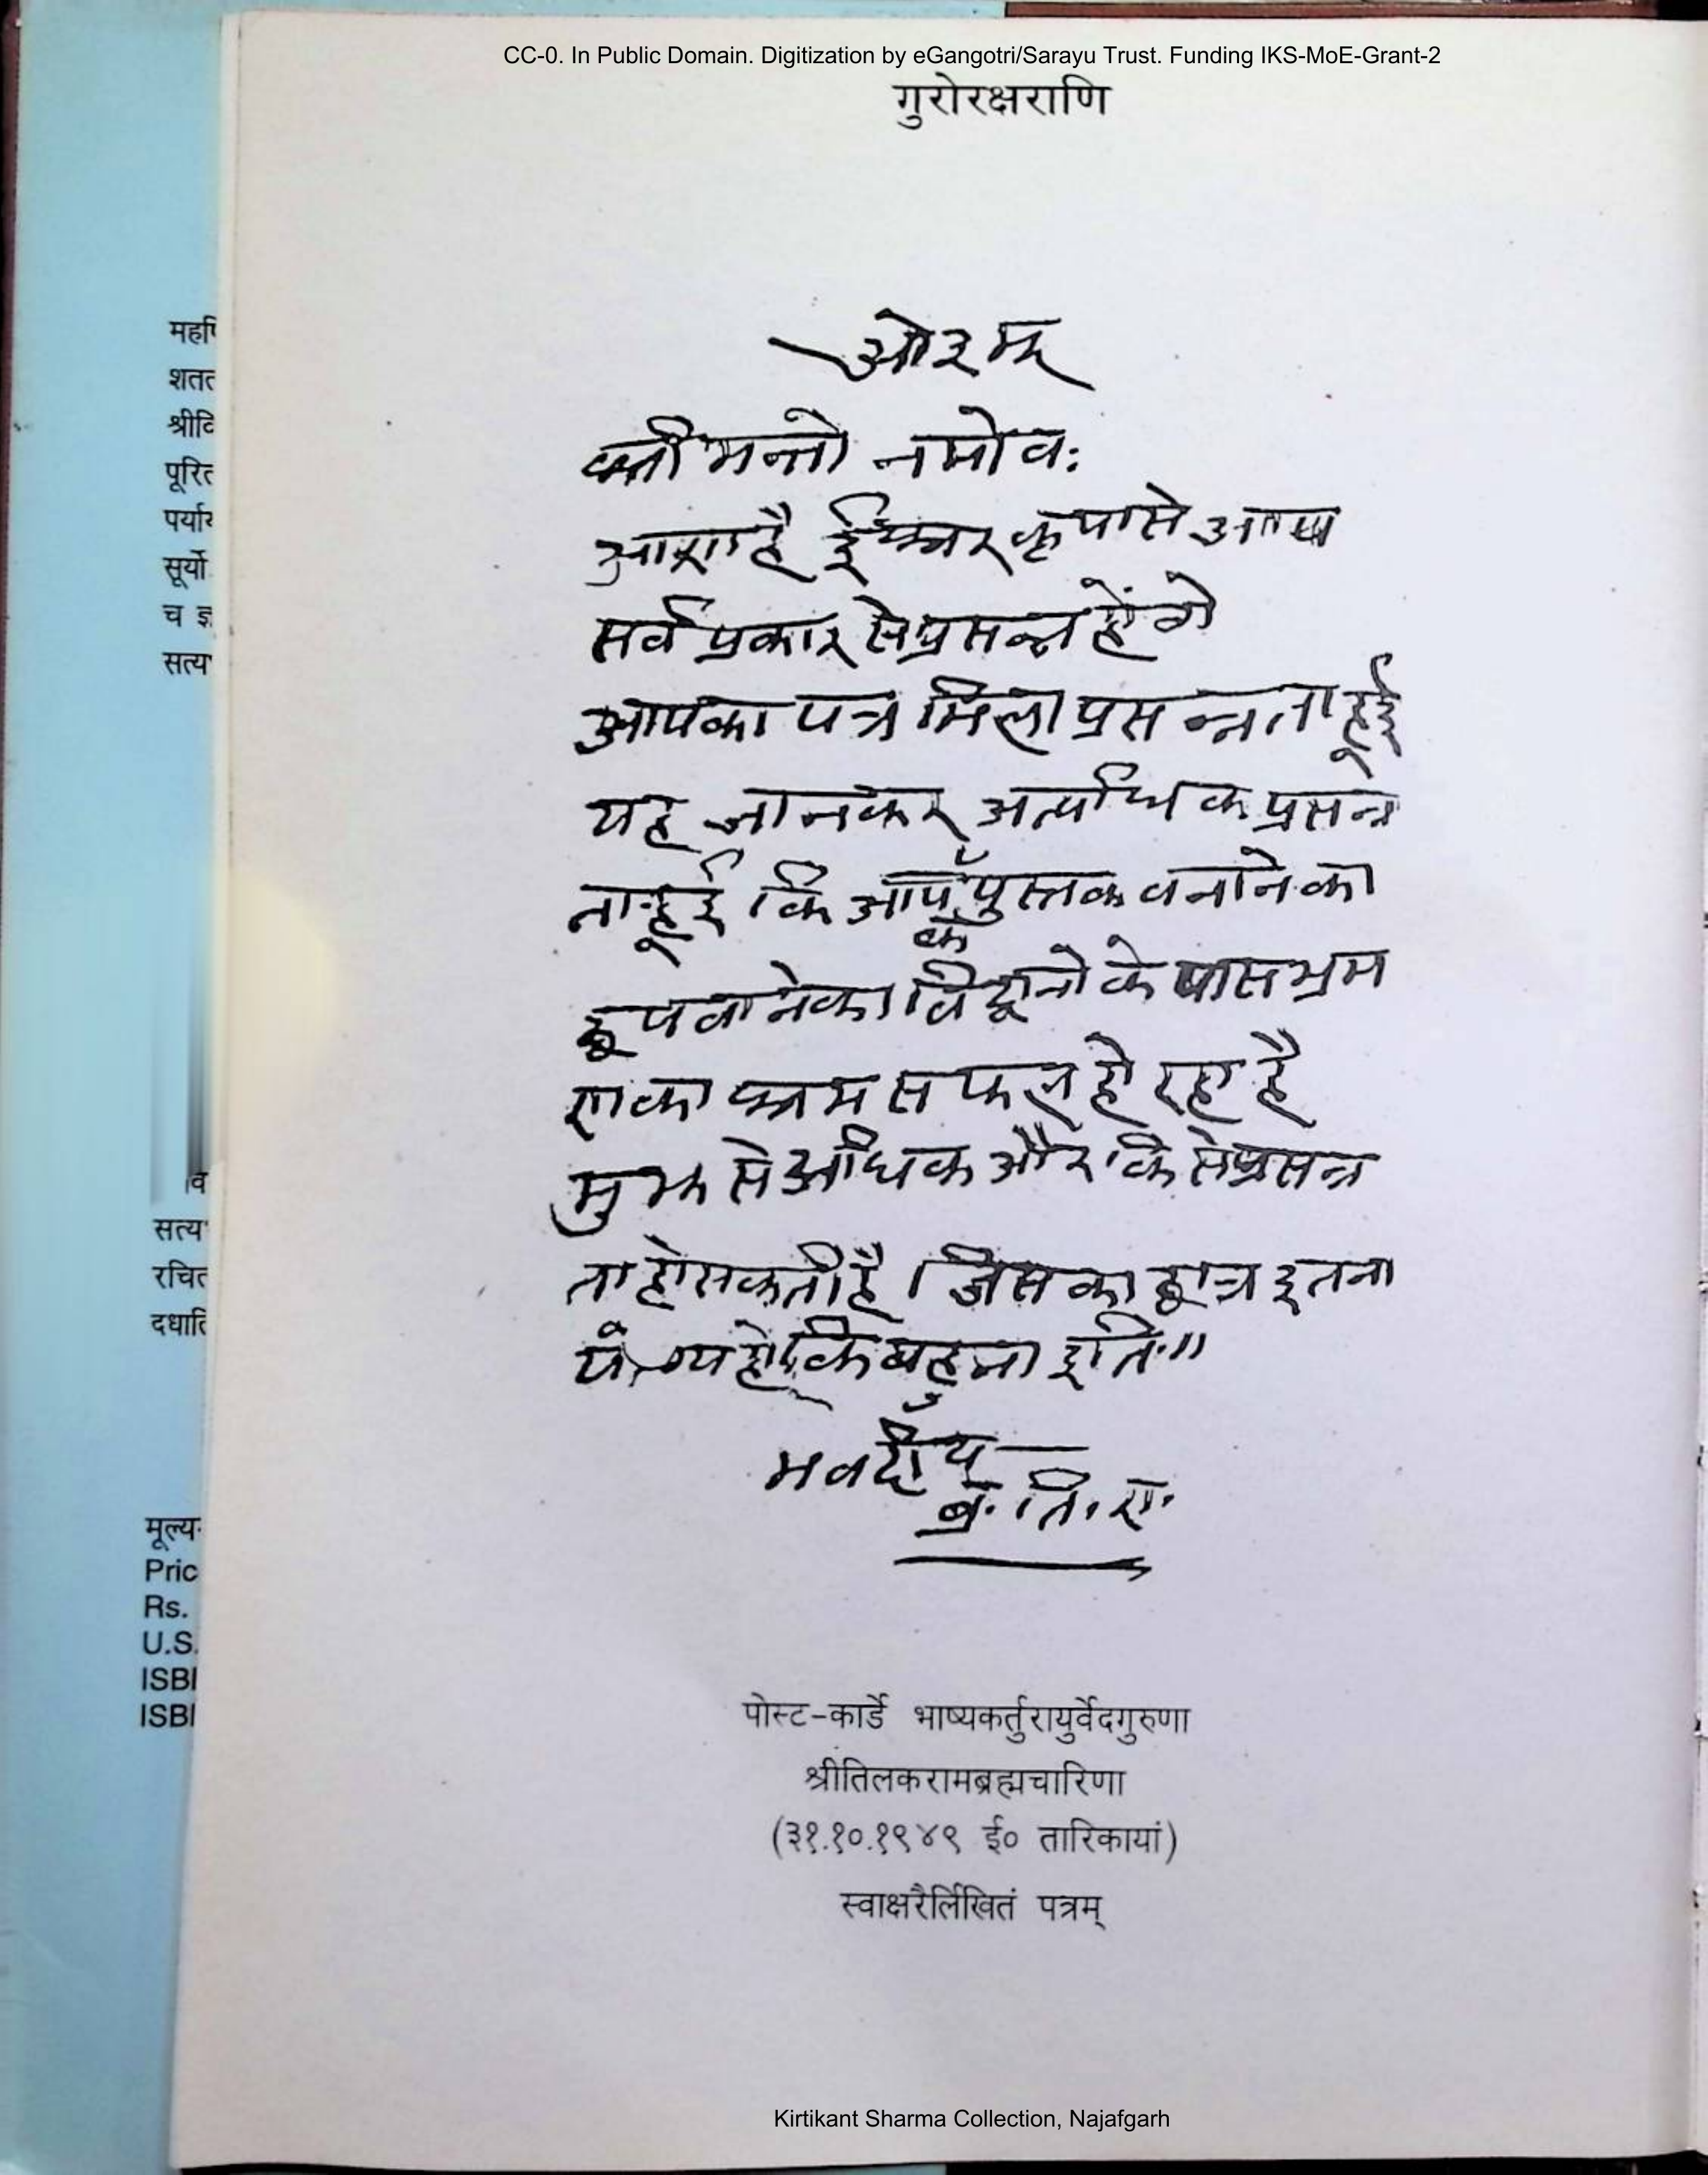 CC-0. In Public Domain. Digitization by eGangotri/Sarayu Trust. Funding IKS-MoE-Grant-2
गुरोरक्षराणि
ओ३म्
श्रीमन्तो नमोवः
आशा है ईश्वर कृपा से आप
सर्व प्रकार से प्रसन्न होंगे
आपका पत्र मिला प्रसन्नता हूई
यह जानकर अत्यधिक प्रसन्न
ता हूई कि आप के पुस्तक वनाने का
छपवाने का विद्वानो के पास भ्रम
ण का श्रम सफल हो रहा है
मुझ से अधिक और किसे प्रसन्न
ता हो सकती है। जिस का छात्र इतना
योग्य हो किं बहुना इति॥
भवदीय
ब्र. ति. रा.
पोस्ट-कार्डे भाष्यकर्तुरायुर्वेदगुरुणा
श्रीतिलकरामब्रह्मचारिणा
(३१.१०.१९४९ ई० तारिकायां)
स्वाक्षरैर्लिखितं पत्रम्
Kirtikant Sharma Collection, Najafgarh
महर्षि
शतत
श्रीवि
पूरित
पर्याय
सूर्यो
च ज्ञ
सत्य
सत्य
रचित
दधाति
मूल्य
Pric
Rs.
U.S.
ISBI
ISBI